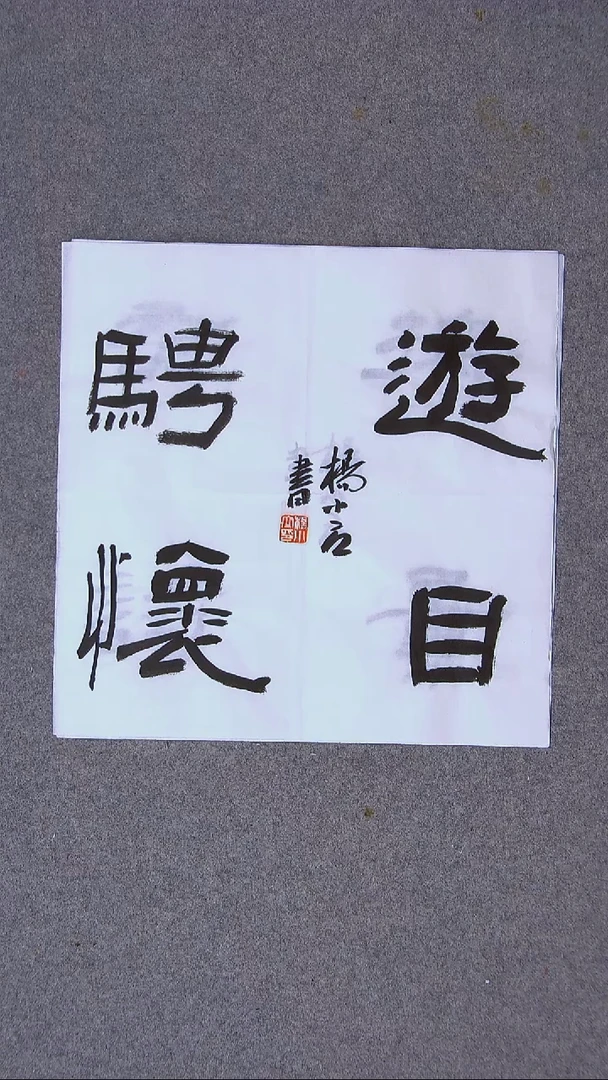 遊目
騁懷
楊小
書